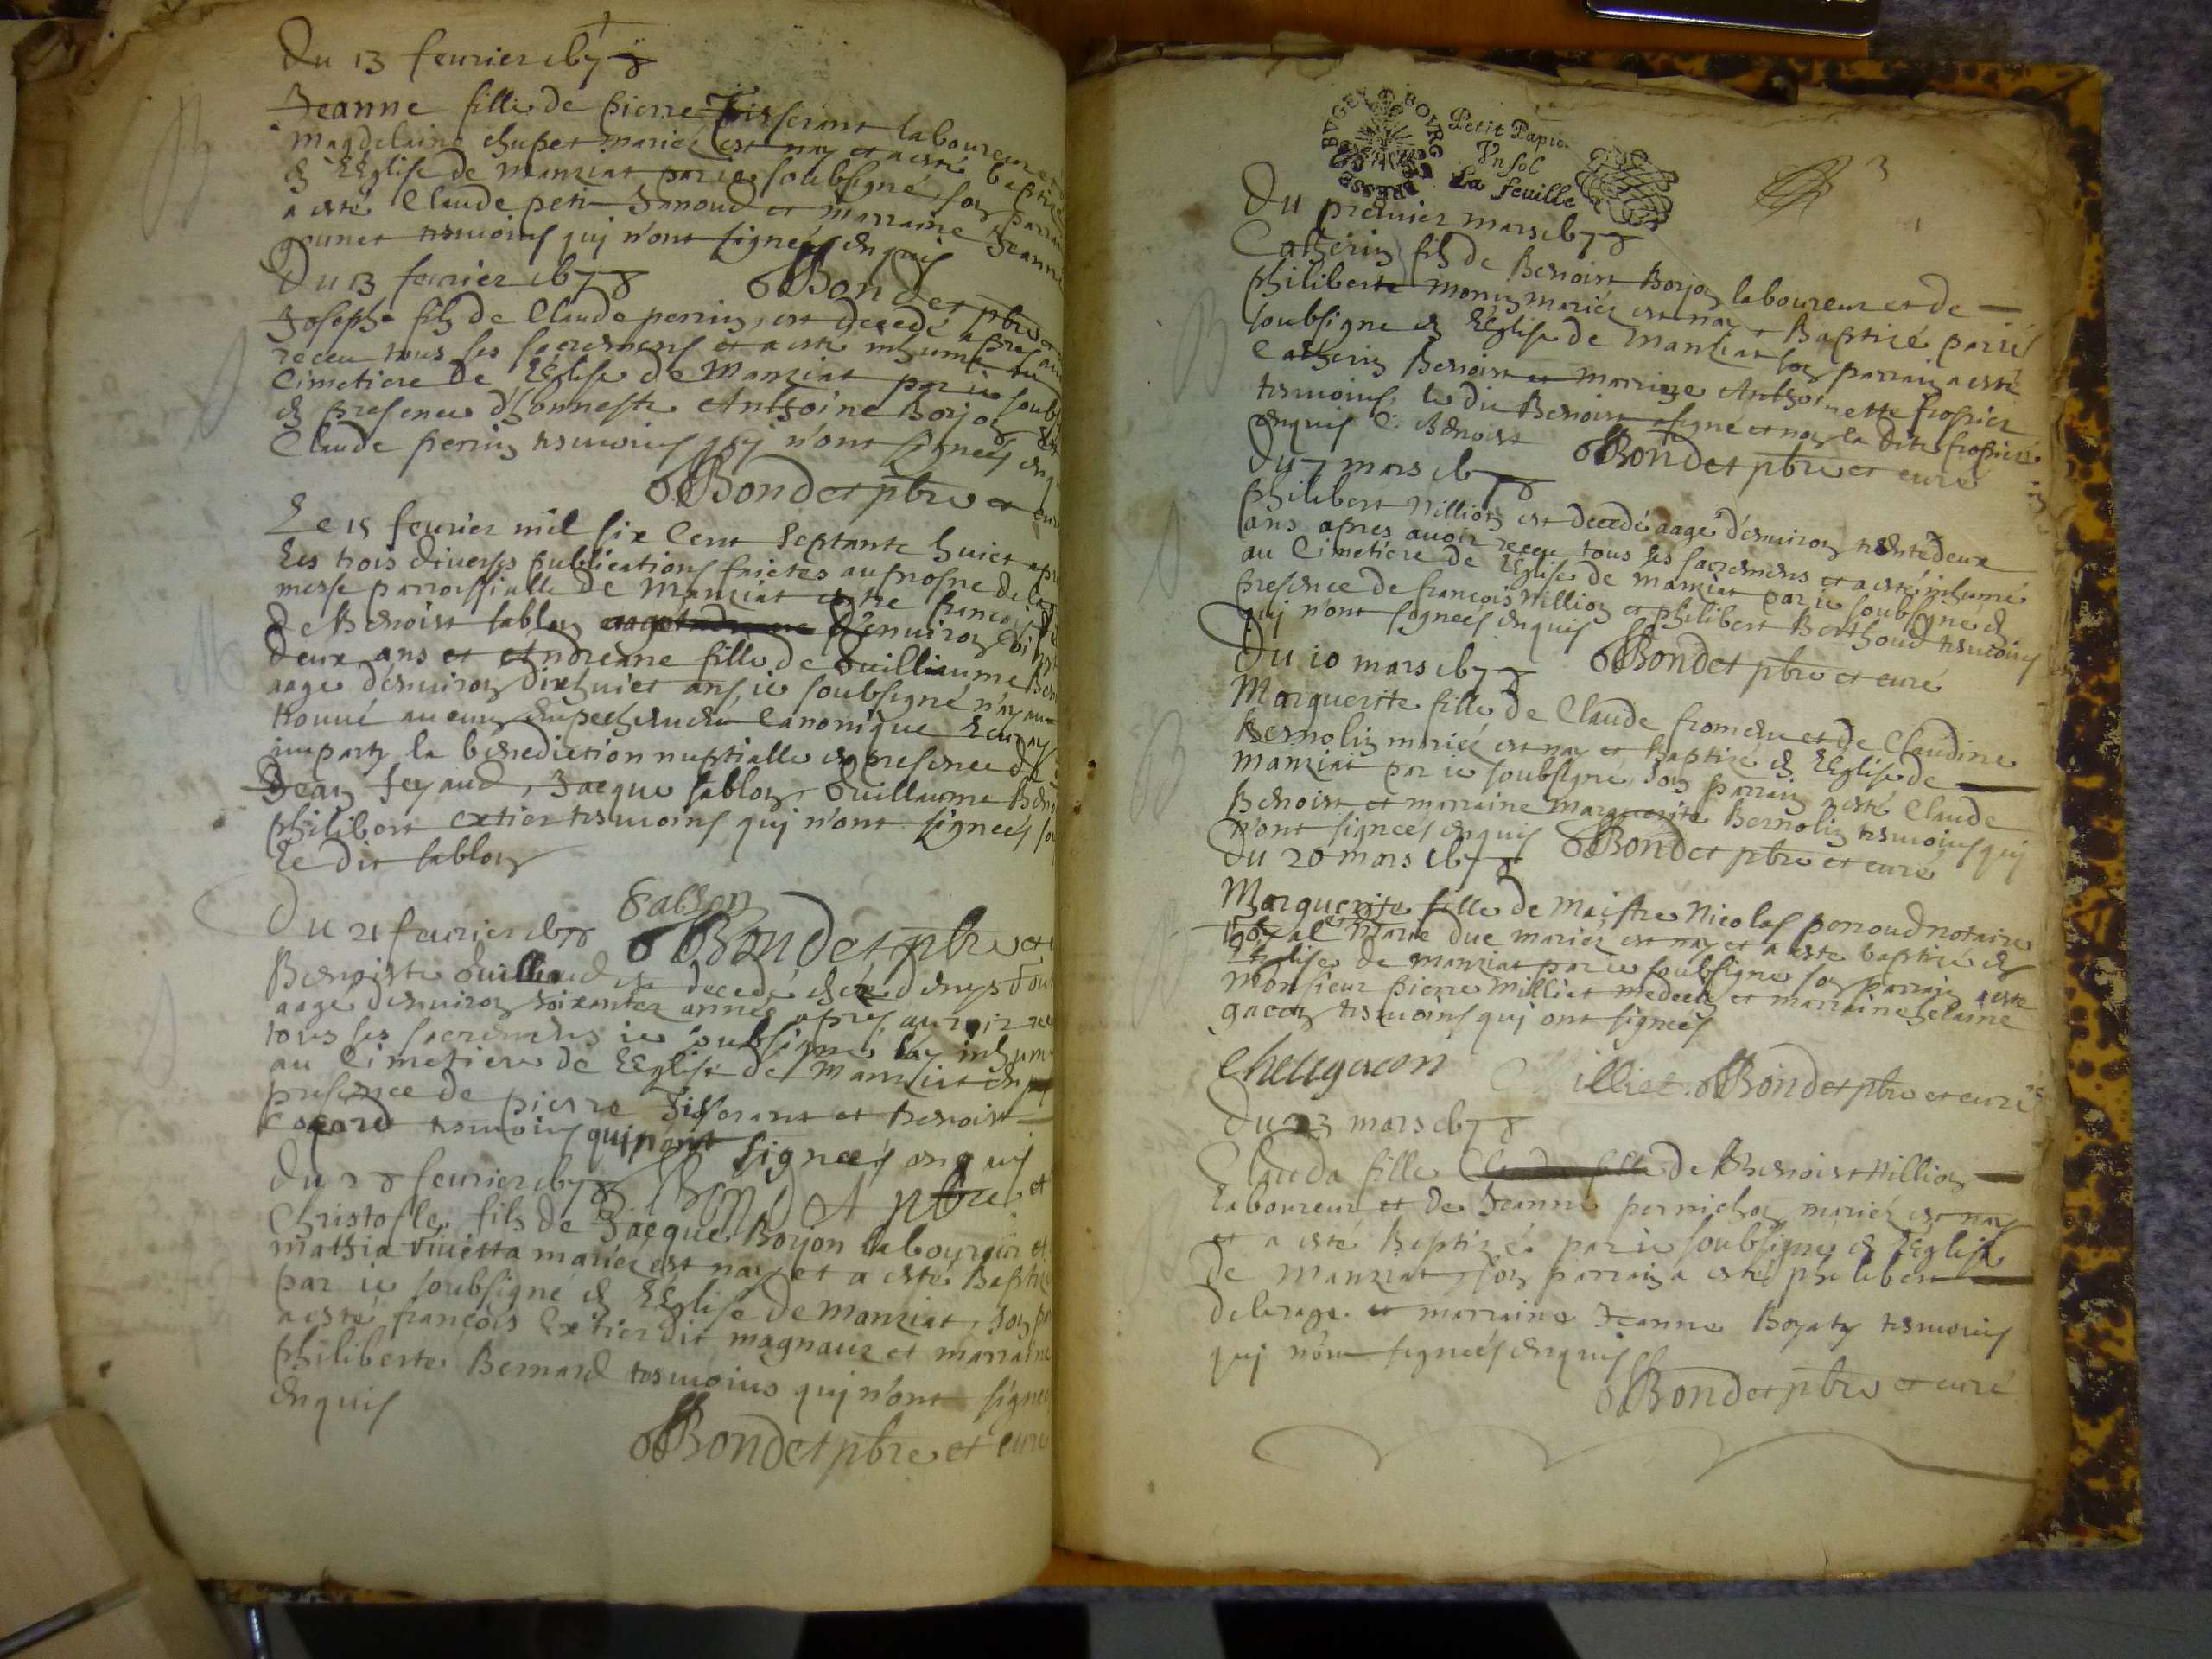 Du 13 feurier 1678
Jeanne fille de pierre Tisserant laboureur et
magdelaine chapet mariéz est nay et a esté baptizé
en LEglise de manziat par ie soubsigné, son parrain
a esté Claude petit Janoud et marraine Jeanne
gounet tesmoins quj n'ont signéés enquis
Du 13 feurier 1678 Bondet pbre et
Josephe filz de Claude perrin, est decedé apres auoir
receu tous ses sacremens et a esté inhumé au
Cimetiere de LEglise de Manziat par ie soubs
en presence d'honneste Anthoine Borjon et
Claude perrin tesmoins quj n'ont signéés enquis
Bondet pbre et curé
Le 15 feurier mil six Cent Septante huict apres
les trois diuerses publications faictes au prosne de la
messe parroissialle de Manziat entre françois
de Benoist sablon d'enuiron vingt
deux ans et Andréanne fille de Guilliaume Ben
aage d'enuiron dix huict ans, ie soubsigné n'ay
trouué aucung empechement Canonique Leur ay
imparty la bénédiction nuptialle en presence de
Jean feyaud, Jacque sablon, Guillaume Ben
philibert extier tesmoins quj n'ont signéés
Le dit sablon
Sablon
Du 21 feurier 1678 Bondet pbre et
Benoiste Guilleaud est decedé
aagé denuiron soixantez année apres auoir
tous ses sacremens ie soubsigné lay inhumé
au Cimetiere de LEglise de Manziat en
presence de pierre Tisserant et Benoist
tesmoins qui n'ont signéés enquis
Du 28 feurier 1678 Bondet pbre et
Christofle fils de Jacque Boyon laboureur et
mathia viuetta mariéz est nay et a esté Baptizé
par ie soubsigné en LEglise de Manziat, son
a esté françois Extier dit magnauz et marraine
philiberte Bernard tesmoins quj n'ont signéés
enquis
Bondet pbre et curé
BOVRG PRESSE BVGEY
Petit Papier
Vn sol
La feuille
3
Du premier mars 1678
Catherin filz de Benoist Borjon laboureur et de
philiberte monin mariéz est nay et Baptizé par ie
soubsigne en LEglise de Manziat son parrain a esté
Catherin Benoist et marraine Anthoinette frossier
tesmoins, le dit Benoist a signé et non la dite frossier
enquis C. Benoist Bondet pbre et curé
Du 7 mars 1678
Philibert Nillion est decedé aagé d'enuiron trente deux
ans apres auoir receu tous ses sacremens et a esté inhumé
au Cimetiere de LEglise de manziat par ie soubsigné en
presence de françois Nillion et philibert Berthoud tesmoins
quj n'ont signéés enquis Bondet pbre et curé
Du 10 mars 1678
Marguerite fille de Claude froment et de Claudine
Bernolin mariéz est nay et Baptizé en LEglise de
manziat par ie soubsigné son parrain a esté Claude
Benoist et marraine marguerite Bernolin tesmoins quj
n'ont signéés enquis Bondet pbre et curé
Du 20 mars 1678
Marguerite fille de Maistre Nicolas perroud notaire
royal et Marie duc mariéz est nay et a esté baptizé en
LEglise de manziat par ie soubsigne son parrain a esté
Monsieur pierre Milliet medecin et marraine helaine
gacon tesmoins quj ont signéés
helleegacon Milliet. Bondet pbre et curé
Du 23 mars 1678
Clauda fille Clauda fille de Benoist Nillion
Laboureur et de Jeanne pernichon mariéz est nay
et a esté Baptizé par ie soubsigné en LEglise
de Manziat, son parrain a esté philibert
delerage et marraine Jeanne Boyaty tesmoins
quj n'ont signéés enquis
Bondet pbre et curé